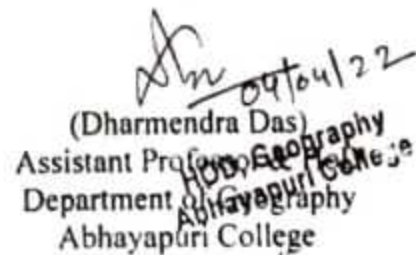 04/04/22
(Dharmendra Das)
Assistant Professor
HOD, Geography
Department of Geography
Abhayapuri College
Abhayapuri College